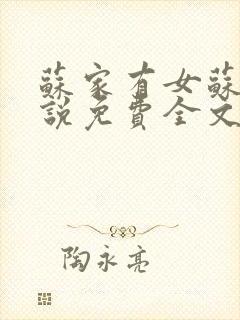 蘇家有女蘇
說免費全文
陶永亮